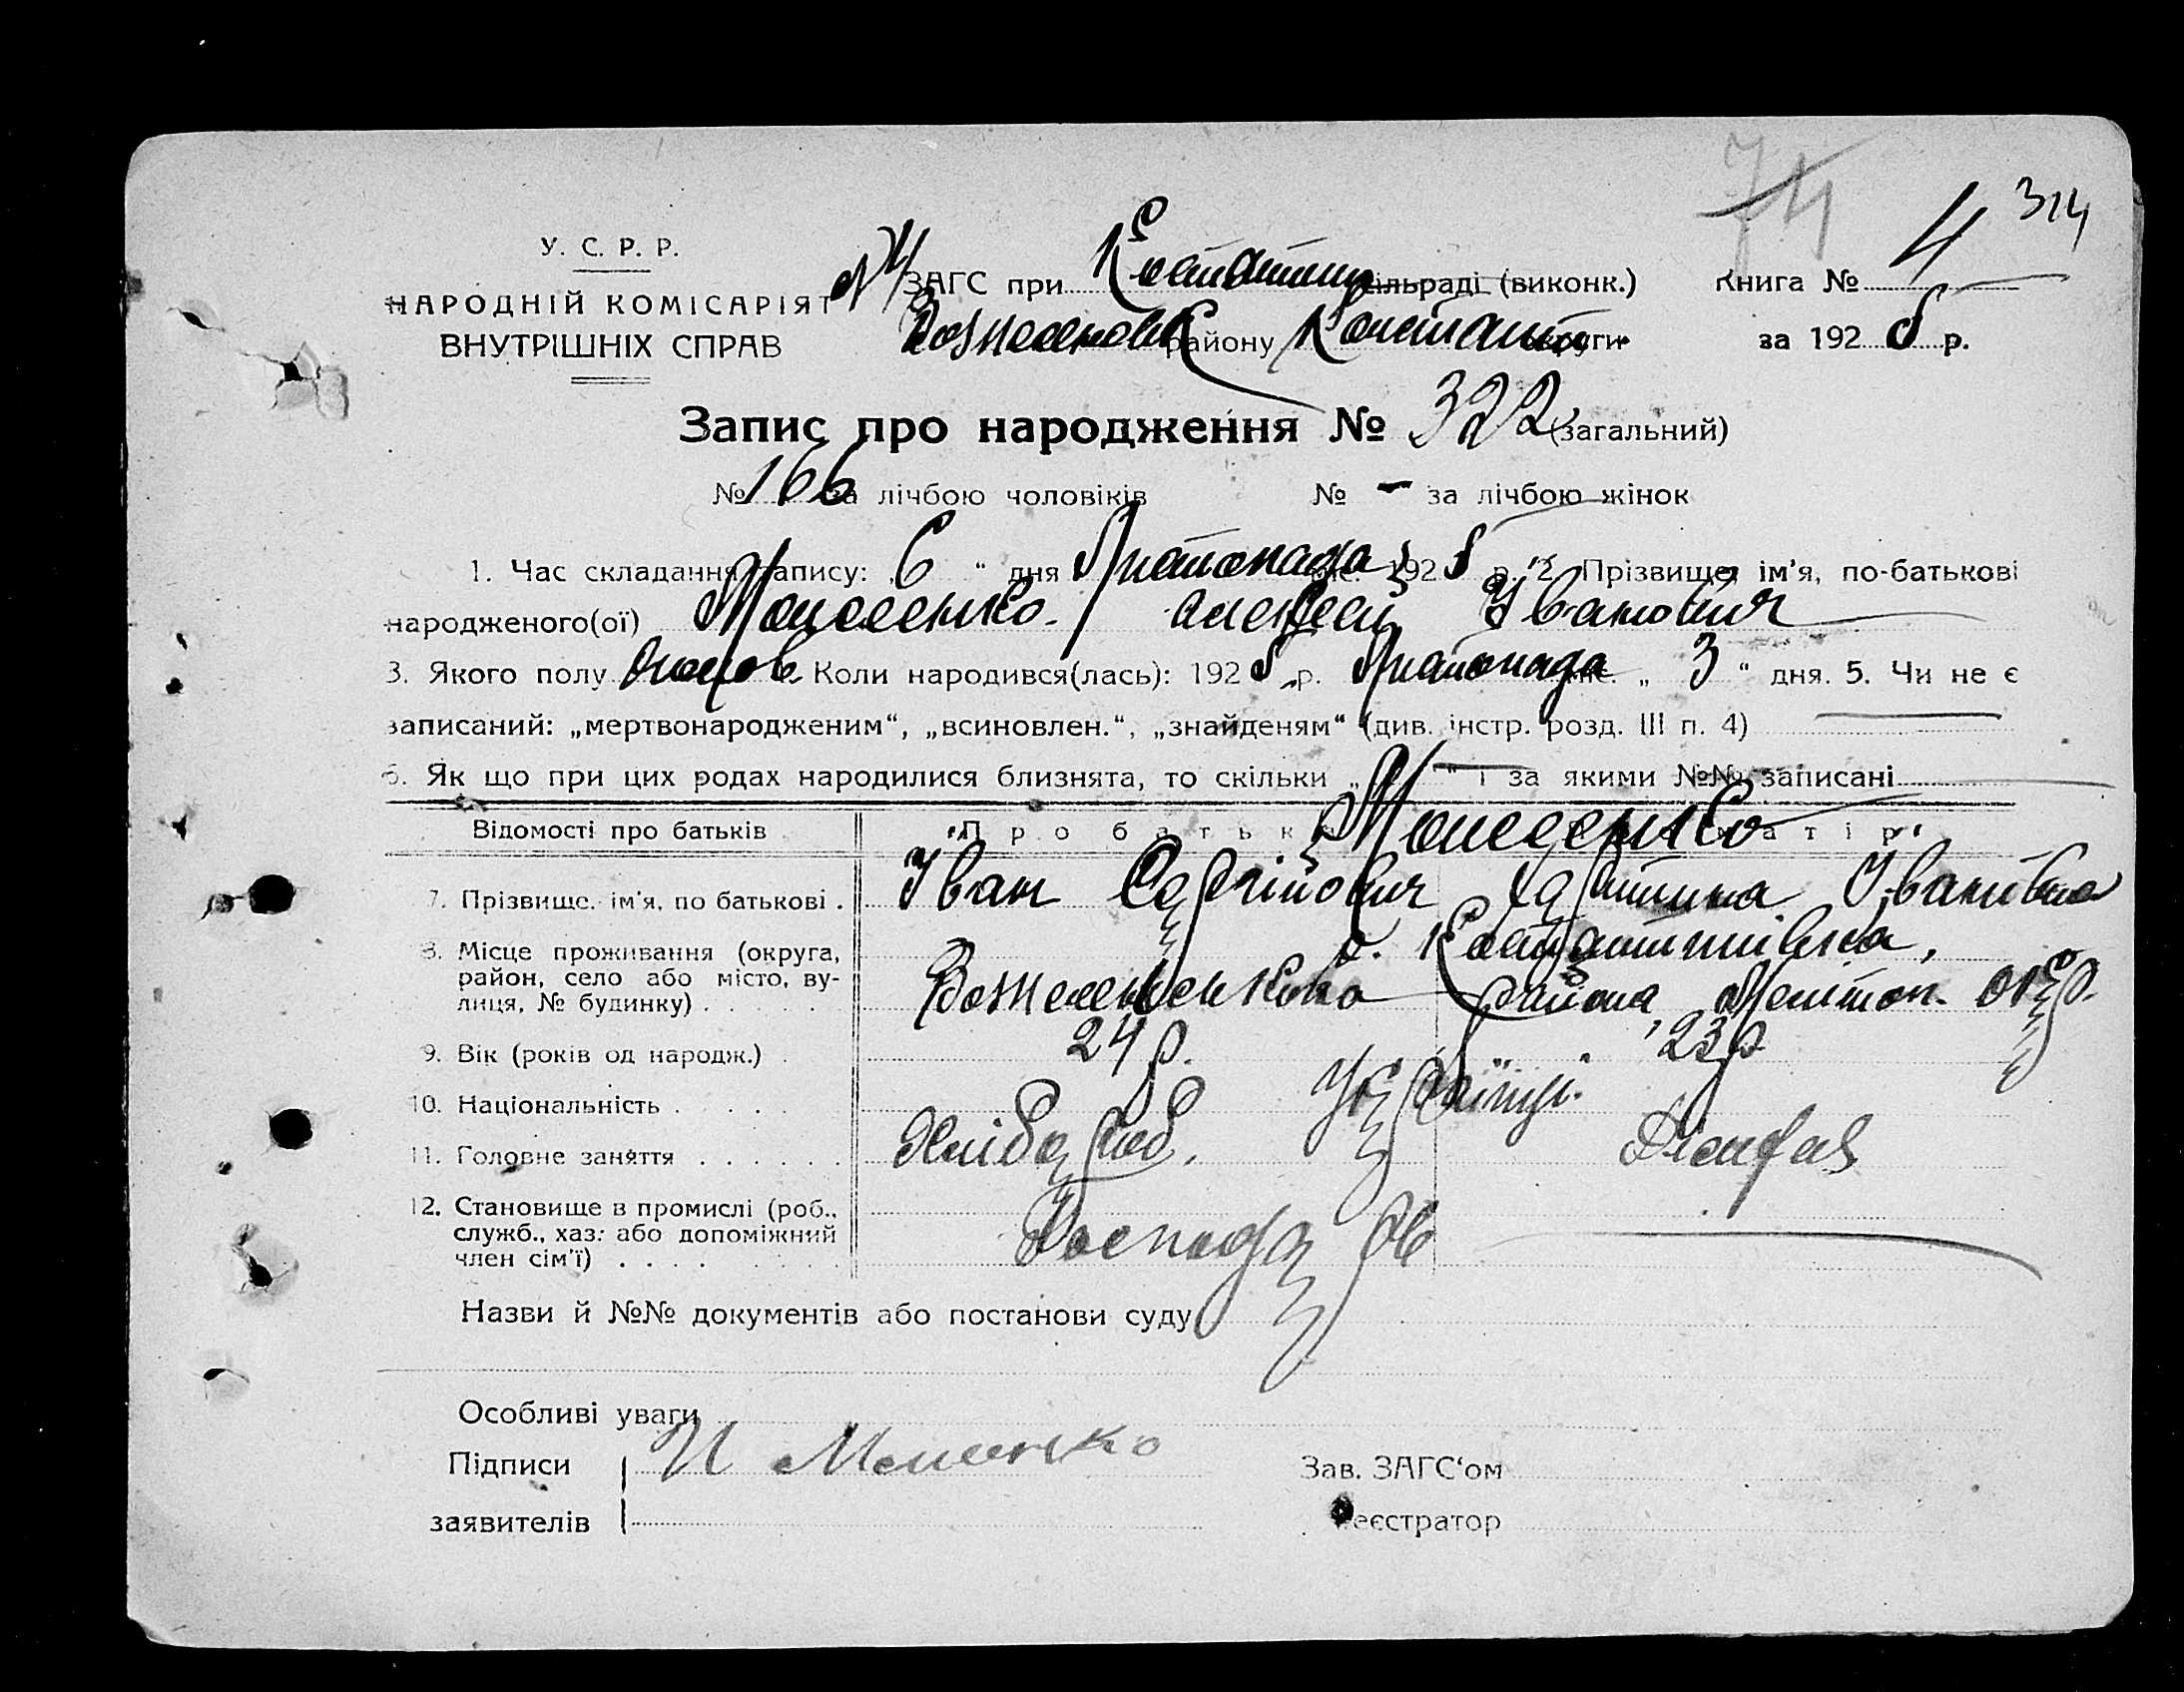 74
314
У. С. Р. Р.
НАРОДНІЙ КОМІСАРІЯТ
ВНУТРІШНІХ СПРАВ
ЗАГС при Костянтин сільраді (виконк.) Книга № 4
району округи за 192 5 р.
Запис про народження № 322 (загальний)
№ 166 за лічбою чоловіків № - за лічбою жінок
1. Час складання запису: „ 6 “ дня Листопада міс. 192 5 р. 2. Прізвище, ім'я, по-батькові
народженого(ої) Мошеенко Алексей Іванович
3. Якого полу Коли народився(лась): 192 5 р. Листопада міс. „ 3 “ дня. 5. Чи не є
записаний: „мертвонародженим“, „всиновлен.“, „знайденям“ (див. інстр. розд. III п. 4)
6. Як що при цих родах народилися близнята, то скільки „ “ і за якими №№ записані
Відомості про батьків Про батька Мошеенко матір
7. Прізвище, ім'я, по батькові . Іван Сергійович Іванівна
8. Місце проживання (округа, район, село або місто, вулиця, № будинку) . с. Костянтинівка,
района, Мелітоп. окр.
9. Вік (років од народж.) . 24 р. 23 р.
10. Національність . Україн.
11. Головне заняття . Хлібороб.
12. Становище в промислі (роб., служб., хаз. або допоміжний член сім'ї) . Господар
Назви й №№ документів або постанови суду
Особливі уваги
Підписи И Мошенко Зав. ЗАГС‘ом
заявителів Реєстратор